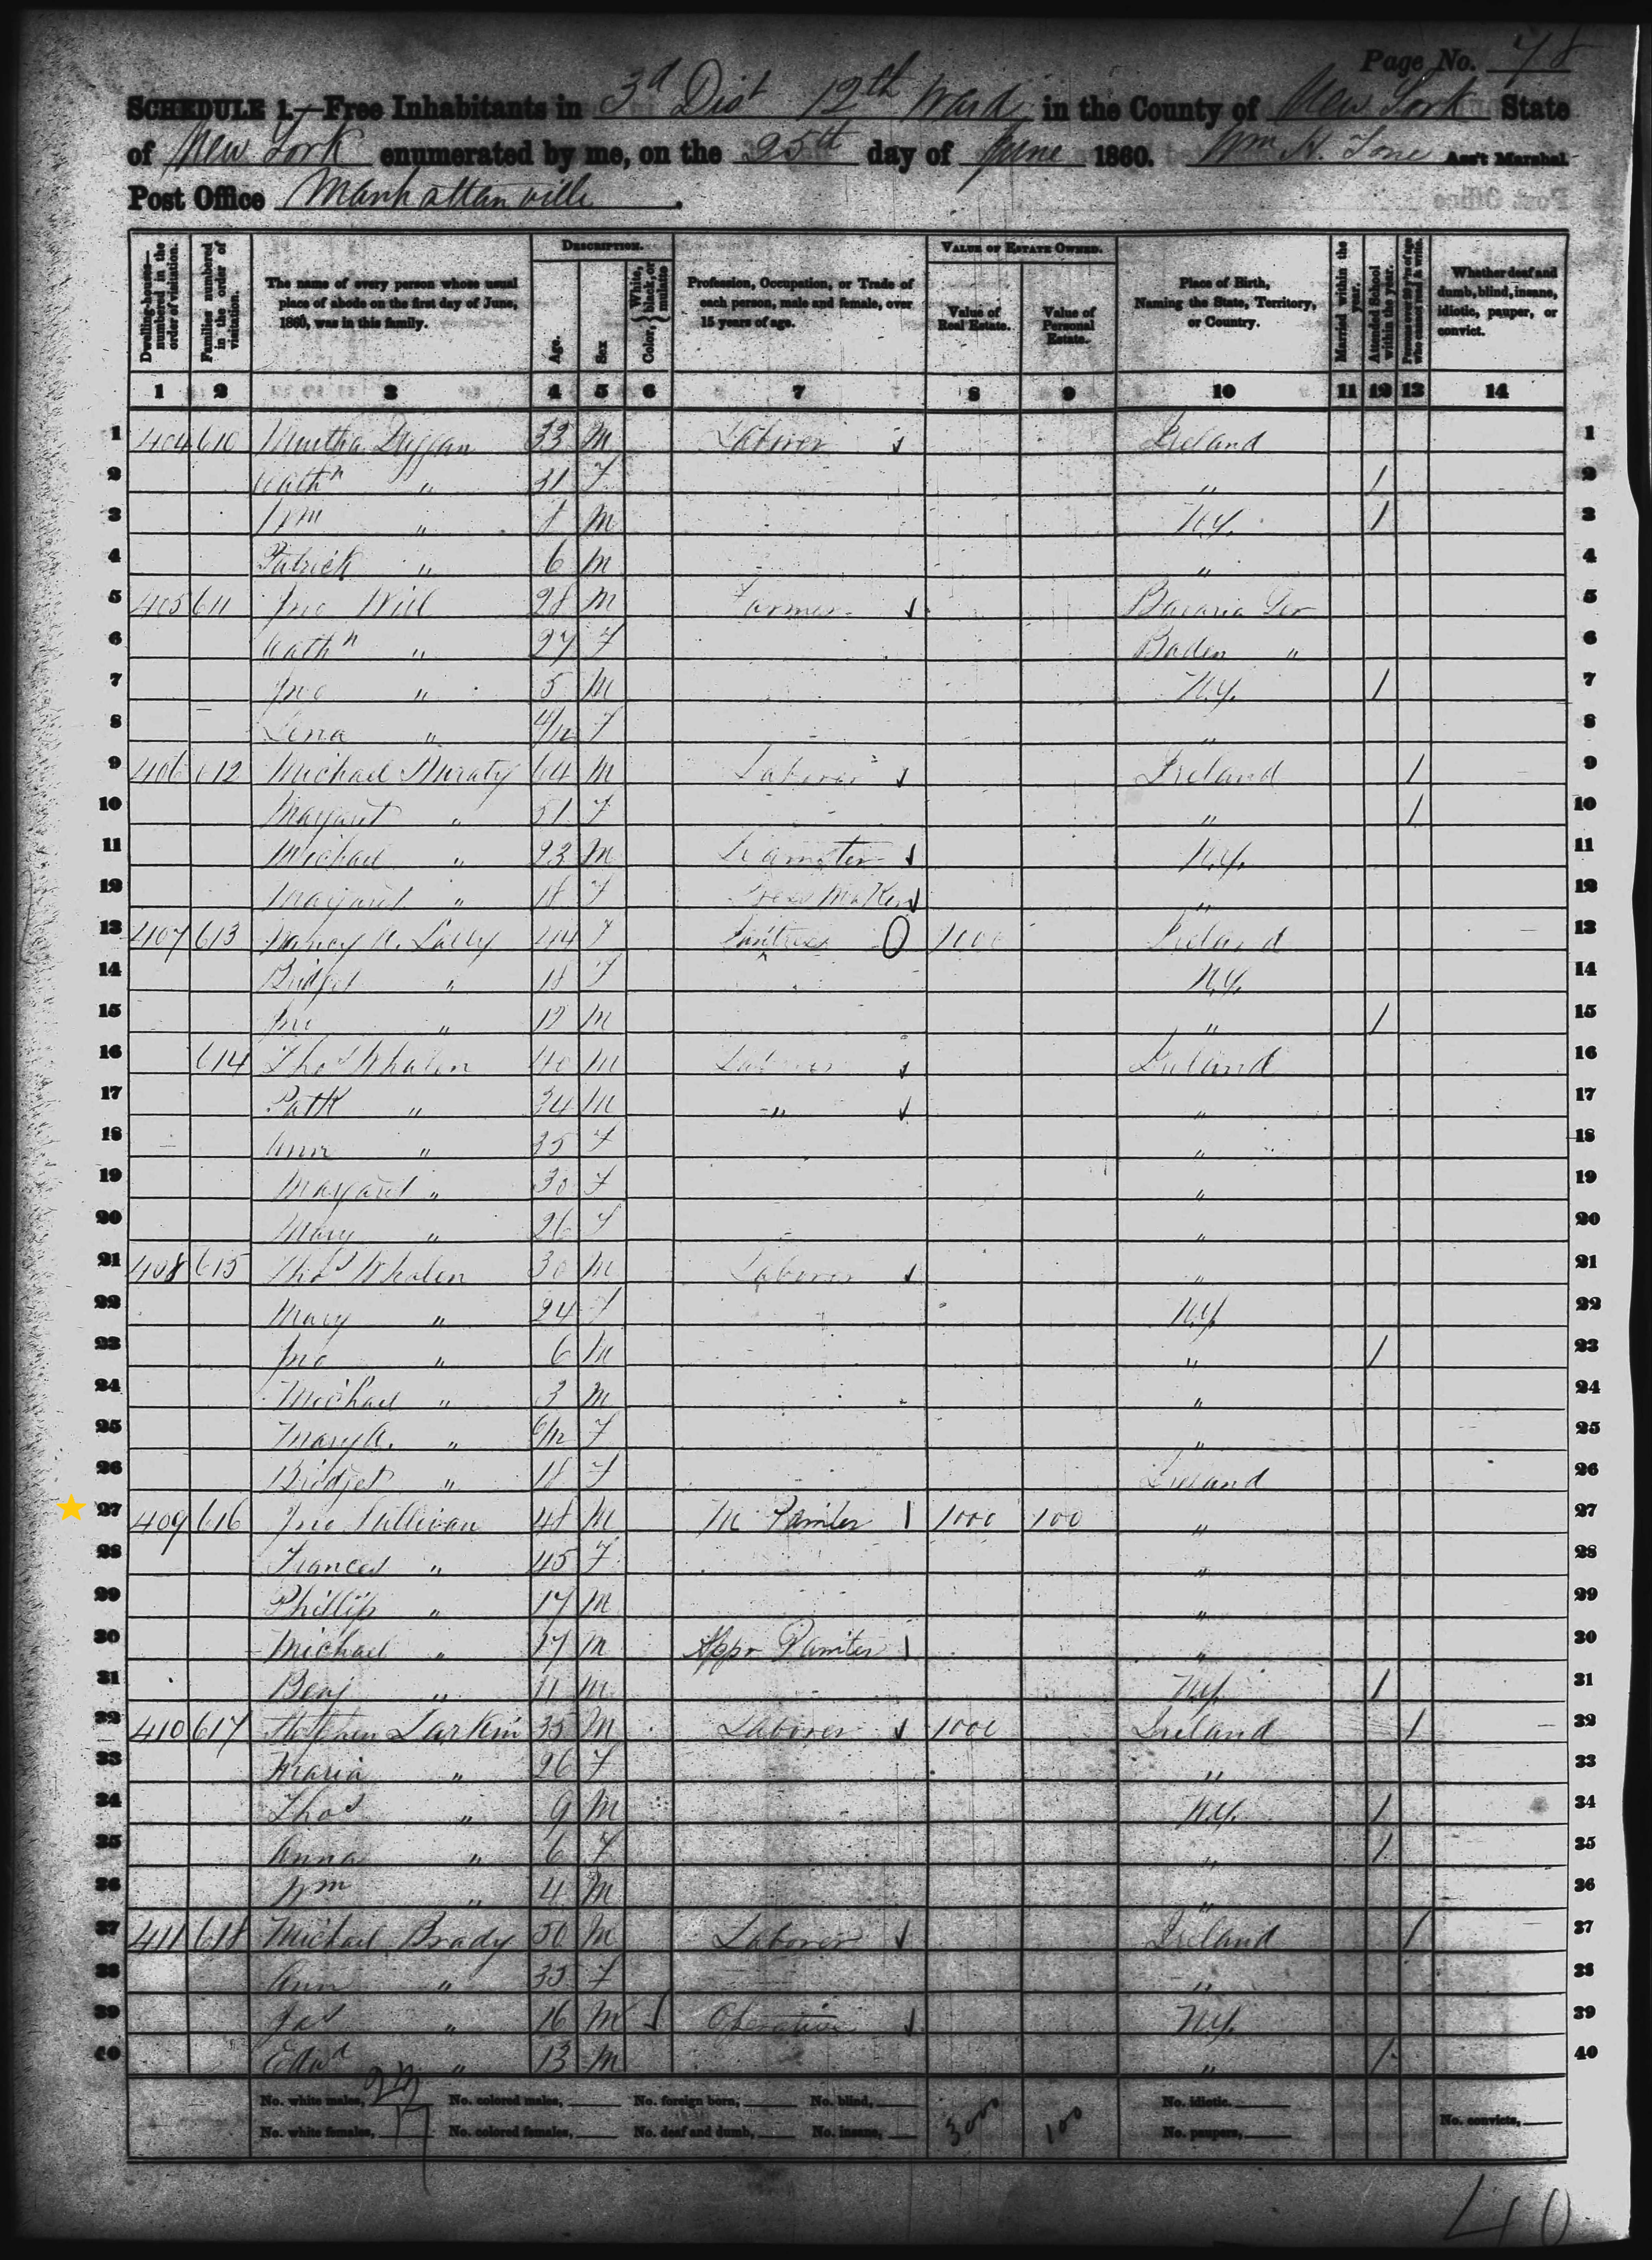 Page No. 78
SCHEDULE 1.—Free Inhabitants in 3d Dist 12th Ward in the County of New York State
of New York enumerated by me, on the 25th day of June 1860. Wm H. Tone Ass't Marshal.
Post Office Manhattanville.
Dwelling-houses—numbered in the order of visitation. Families numbered in the order of visitation. The name of every person whose usual place of abode on the first day of June, 1860, was in this family. DESCRIPTION. Age. Sex Color, White, black, or mulatto Profession, Occupation, or Trade of each person, male and female, over 15 years of age. VALUE OF ESTATE OWNED. Value of Real Estate. Value of Personal Estate. Place of Birth, Naming the State, Territory, or Country. Married within the year. Attended School within the year. Persons over 20 y'rs of age who cannot read & write. Whether deaf and dumb, blind, insane, idiotic, pauper, or convict.
1 2 3 4 5 6 7 8 9 10 11 12 13 14
1 404 610 Duggan 33 M Laborer Ireland 1
2 Cathn " 31 F " / 2
3 Wm " 8 M N.Y. / 3
4 Patrick " 6 M " 4
5 405 611 Jno 28 M Farmer Bavaria Ger 5
6 Cathn " 27 F Baden " 6
7 Jno " 5 M N.Y. / 7
8 Lena " 4/12 F " 8
9 406 612 Michael 64 M Laborer Ireland / 9
10 Margaret " 51 F " / 10
11 Michael " 23 M Teamster N.Y. 11
12 Margaret " 18 F Dress Maker " 12
13 407 613 Nancy A. Lally 44 F 0 1000 Ireland 13
14 Bridget " 18 F N.Y. 14
15 Jno " 12 M " / 15
16 614 Thos Whalen 40 M Laborer Ireland 16
17 Patk " 34 M " " 17
18 Ann " 35 F " 18
19 Margaret " 30 F " 19
20 Mary " 26 F " 20
21 408 615 Thos Whalen 30 M Laborer " 21
22 Mary " 24 F N.Y. 22
23 Jno " 6 M " / 23
24 Michael " 3 M " 24
25 Mary A. " 6/12 F " 25
26 Bridget " 18 F Ireland 26
27 409 616 Jno Sullivan 48 M M Painter 1000 100 " 27
28 Frances " 45 F " 28
29 Phillip " 17 M " 29
30 Michael " 17 M Appr Painter " 30
31 Benj " 11 M N.Y. / 31
32 410 617 Stephen Larkin 35 M Laborer 1000 Ireland / 32
33 Maria " 26 F " 33
34 Thos " 9 M N.Y. / 34
35 Anna " 6 F " / 35
36 Wm " 4 M " 36
37 411 618 Michael Brady 50 M Laborer Ireland / 37
38 Ann " 35 F " 38
39 Jas " 16 M Operative N.Y. 39
40 Edwd " 13 M " / 40
No. white males, No. colored males, No. foreign born, No. blind, 3000 100 No. idiotic.
No. white females, 17 No. colored females, No. deaf and dumb, No. insane, No. paupers, No. convicts,
40